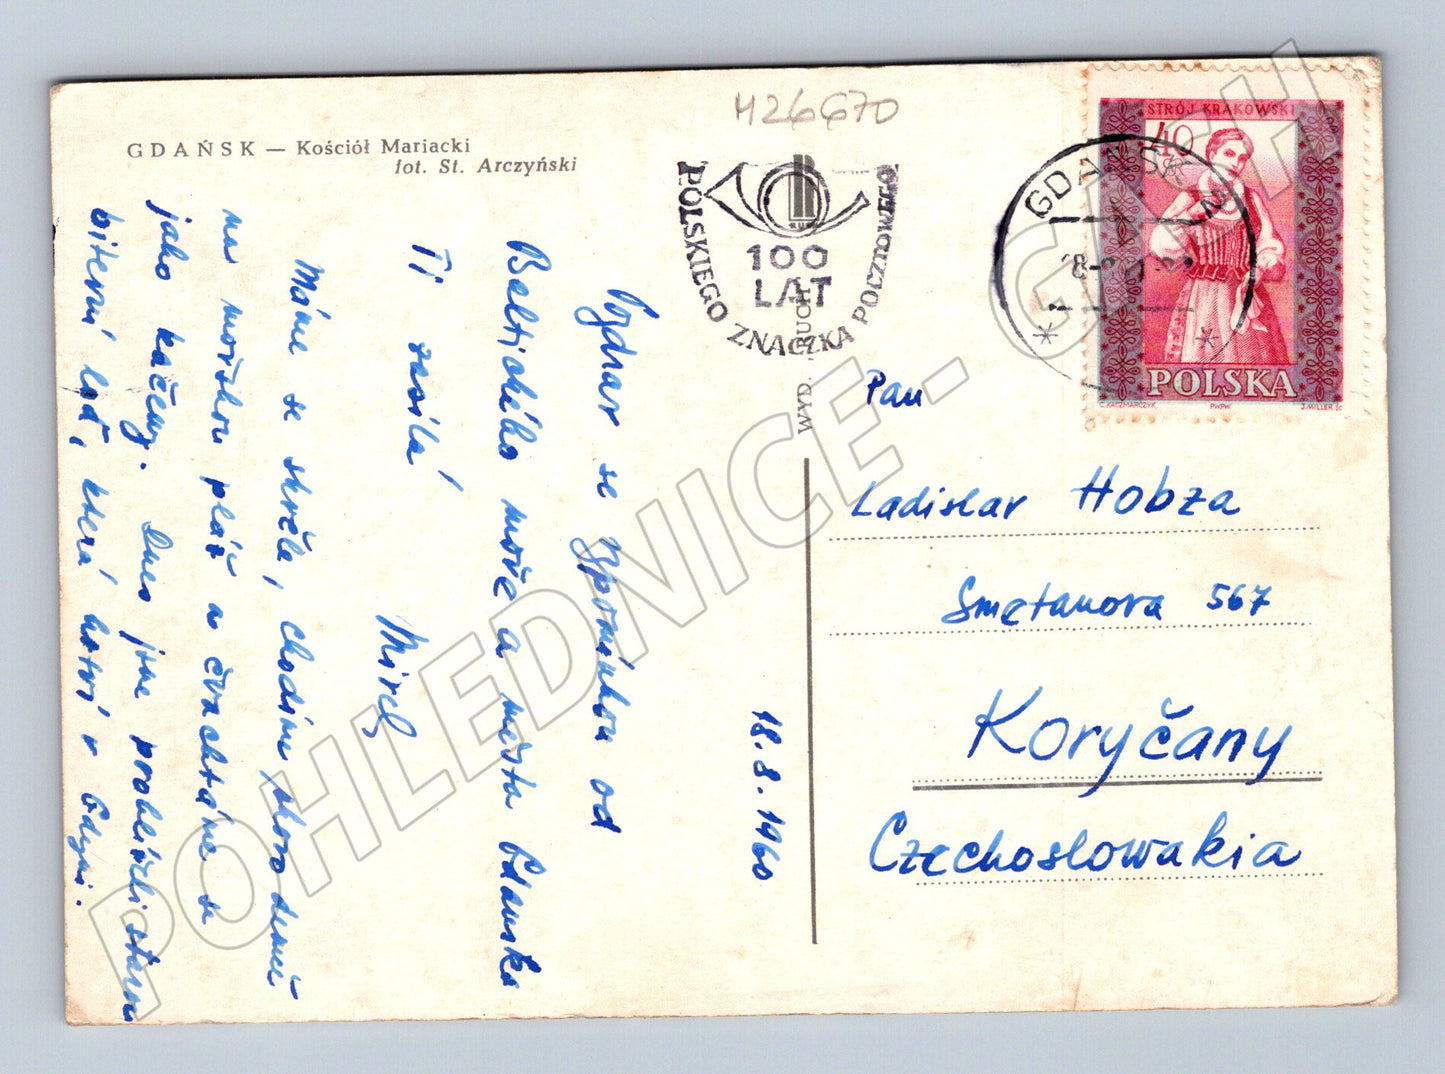 GDAŃSK — Kościół Mariacki
fot. St. Arczyński
H26670
100
LAT
POLSKIEGO ZNACZKA POCZTOWEGO
WYD. „RUCH”
GDAŃSK 2
STRÓJ KRAKOWSKI
40
POLSKA
C. KACZMARCZYK PWPW J. MILLER SC.
Pozdrav se vzpomínkou od
Baltického moře a města Gdańska
Ti zasílá
Mirek
Máme se skvěle, chodíme skoro denně
na mořskou pláž a čvachtáme se
jako kačeny. Dnes jsme prohlíželi starou
bitevní loď, která kotví v Gdyni.
18.8.1960
Pan
Ladislav Hobza
Smetanova 567
Koryčany
Czechoslowakia
POHLEDNICE - GMCH